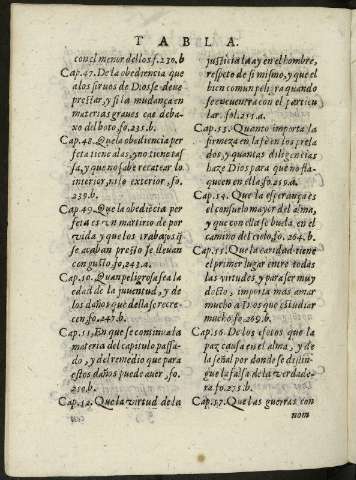 TABLA.
con el menor dellos f.230.b
Cap.47. De la obediencia que
a los sieruos de Dios se deue
prestar, y si la mudança en
materias graues cae deba-
xo del boto, fo.235.b.
Cap.48. Que la obediencia per
feta tiene alas, y no tiene ta
sa, y que no sabe recatear lo
interior, ni lo exterior, fo.
239.b.
Cap.49. Que la obediēcia per
feta es vn martirio de por
vida y que los trabajos q̃
se acaban presto se lleuan
con gusto, fo.242.
Cap.50. Quan peligrosa sea la
edad de la juuentud, y de
los daños que della se recre-
cen, fo.247.b.
Cap.51. En que se continua la
materia del capitulo passa-
do, y del remedio que para
estos daños puede auer, fo.
250.b.
Cap.52. Que la virtud de la
justicia la ay en el hombre,
respeto de si mismo, y que el
bien comun peligra quando
se encuentra con el particu
lar. fol.251.a.
Cap.53. Quanto importa la
firmeza en la fè en los prela
dos, y quantas diligencias
haze Dios para que no fla-
queen en ella fo.259.a.
Cap.54. Que la esperança es
el consuelo mayor del alma,
y que con ella se buela, en el
camino del cielo, fo.264.b.
Cap.55. Que la caridad tiene
el primer lugar entre todas
las virtudes, y para ser muy
docto, importa mas amar
mucho a Dios que estudiar
mucho, fo.269.b.
Cap.56. De los efetos que la
paz causa en el alma, y de
la señal por donde se distin-
gue la falsa de la verdade-
ra. fo.275.b.
Cap.57. Que las guerras con
nom